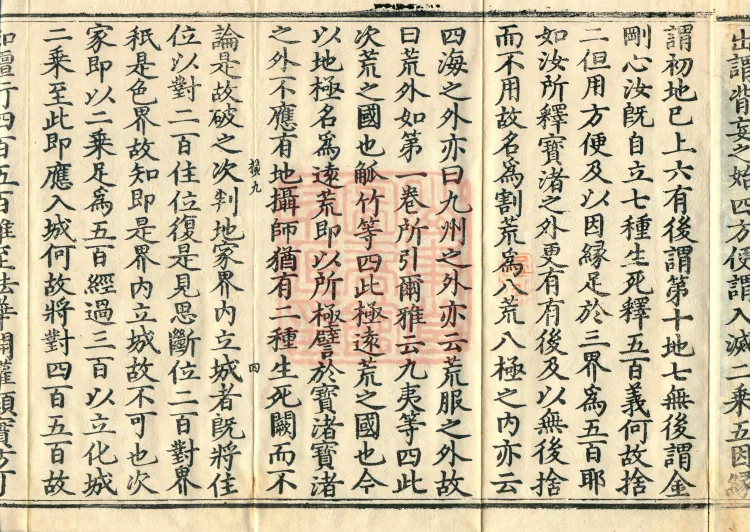 出謂背妄之始四方便謂入滅二乘五因緣
謂初地已上六有後謂第十地七無後謂金
剛心汝旣自立七種生死釋五百義何故捨
二但用方便及以因緣足於三界爲五百耶
如汝所釋寶渚之外更有有後及以無後捨
而不用故名爲割荒爲八荒八極之內亦云
四海之外亦曰九州之外亦云荒服之外故
曰荒外如第一卷所引爾雅云九夷等四此
次荒之國也觚竹等四此極遠荒之國也今
以地極名爲遠荒即以所極譬於寶渚寶渚
之外不應有地攝師猶有二種生死闕而不
四
論是故破之次判地家界內立城者旣將住
位以對二百住位復是見思斷位二百對界
祇是色界故知即是界內立城故不可也次
家即以二乘足爲五百經過三百以立化城
二乘至此即應入城何故將對四百五百故
如壇行四百五百唯至法華開權顯實方可